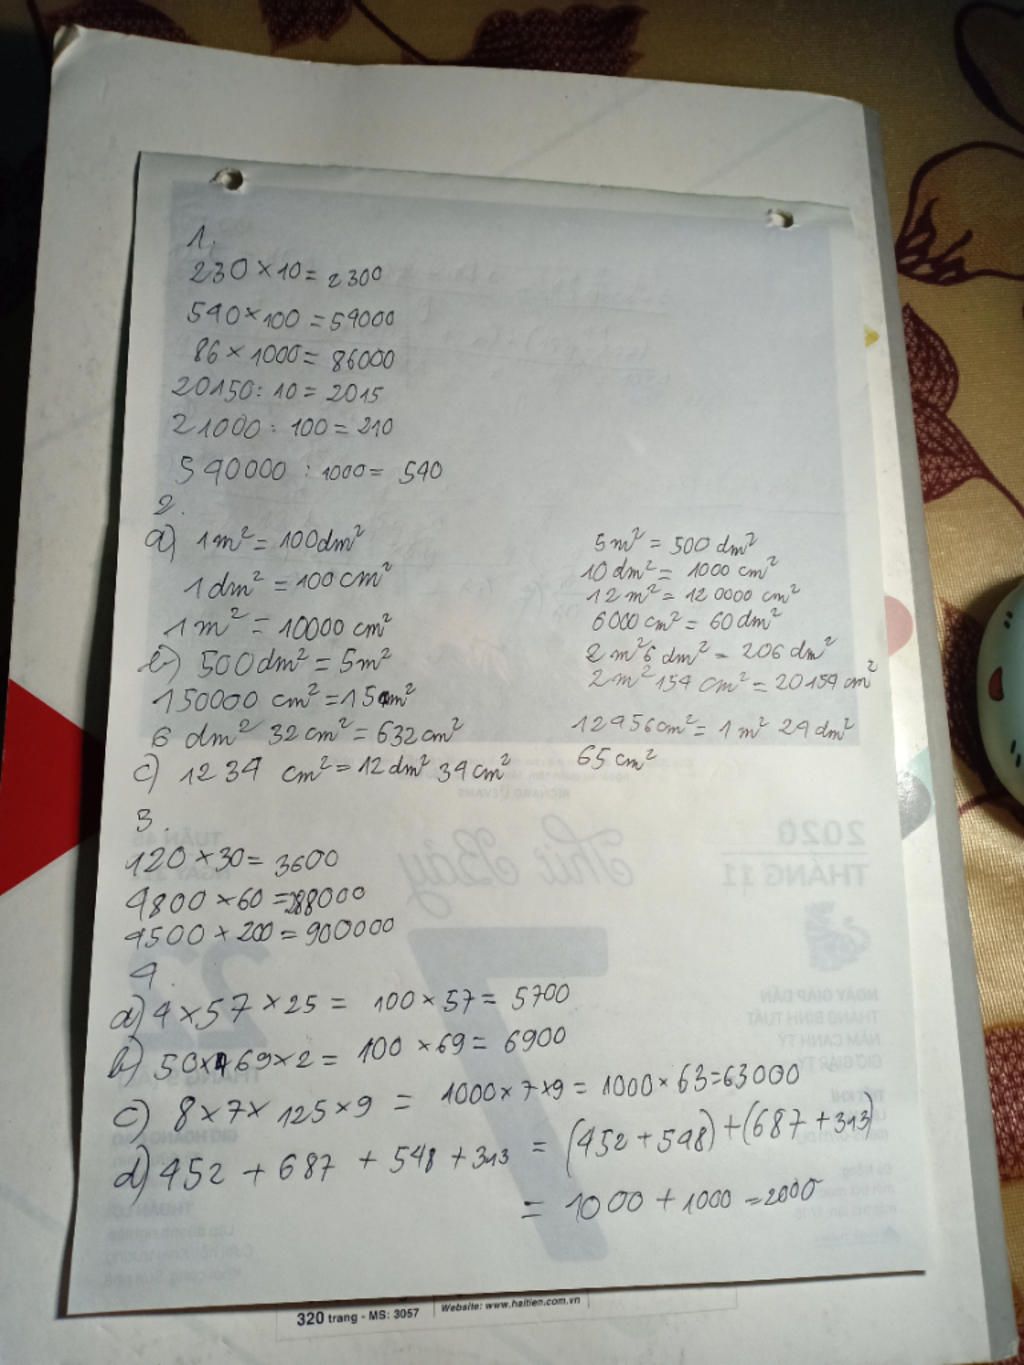 1.
230 × 10 = 2300
540 × 100 = 54000
86 × 1000 = 86000
20150 : 10 = 2015
21000 : 100 = 210
540000 : 1000 = 540
2.
a) 1m² = 100dm²
1dm² = 100cm²
1m² = 10000 cm²
b) 500dm² = 5m²
150000 cm² = 15m²
6 dm² 32cm² = 632cm²
c) 1234 cm² = 12dm² 34cm²
5m² = 500 dm²
10dm² = 1000 cm²
12m² = 120000 cm²
6000cm² = 60dm²
2m²6dm² = 206dm²
2m²154cm² = 20154cm²
12456cm² = 1m² 24dm²
65cm²
3.
120 × 30 = 3600
4800 × 60 = 288000
4500 × 200 = 900000
4.
a) 4 × 57 × 25 = 100 × 57 = 5700
b) 50 × 69 × 2 = 100 × 69 = 6900
c) 8 × 7 × 125 × 9 = 1000 × 7 × 9 = 1000 × 63 = 63000
d) 452 + 687 + 548 + 313 = (452 + 548) + (687 + 313)
= 1000 + 1000 = 2000
2020
THÁNG 11
Thứ Bảy
TUẦN
7
RICHARD L EVANS
NGÀY GIÁP DẦN
THÁNG BÍNH TUẤT
NĂM CANH TÝ
GIỜ GIÁP TÝ
320 trang - MS: 3057
Website: www.haitien.com.vn